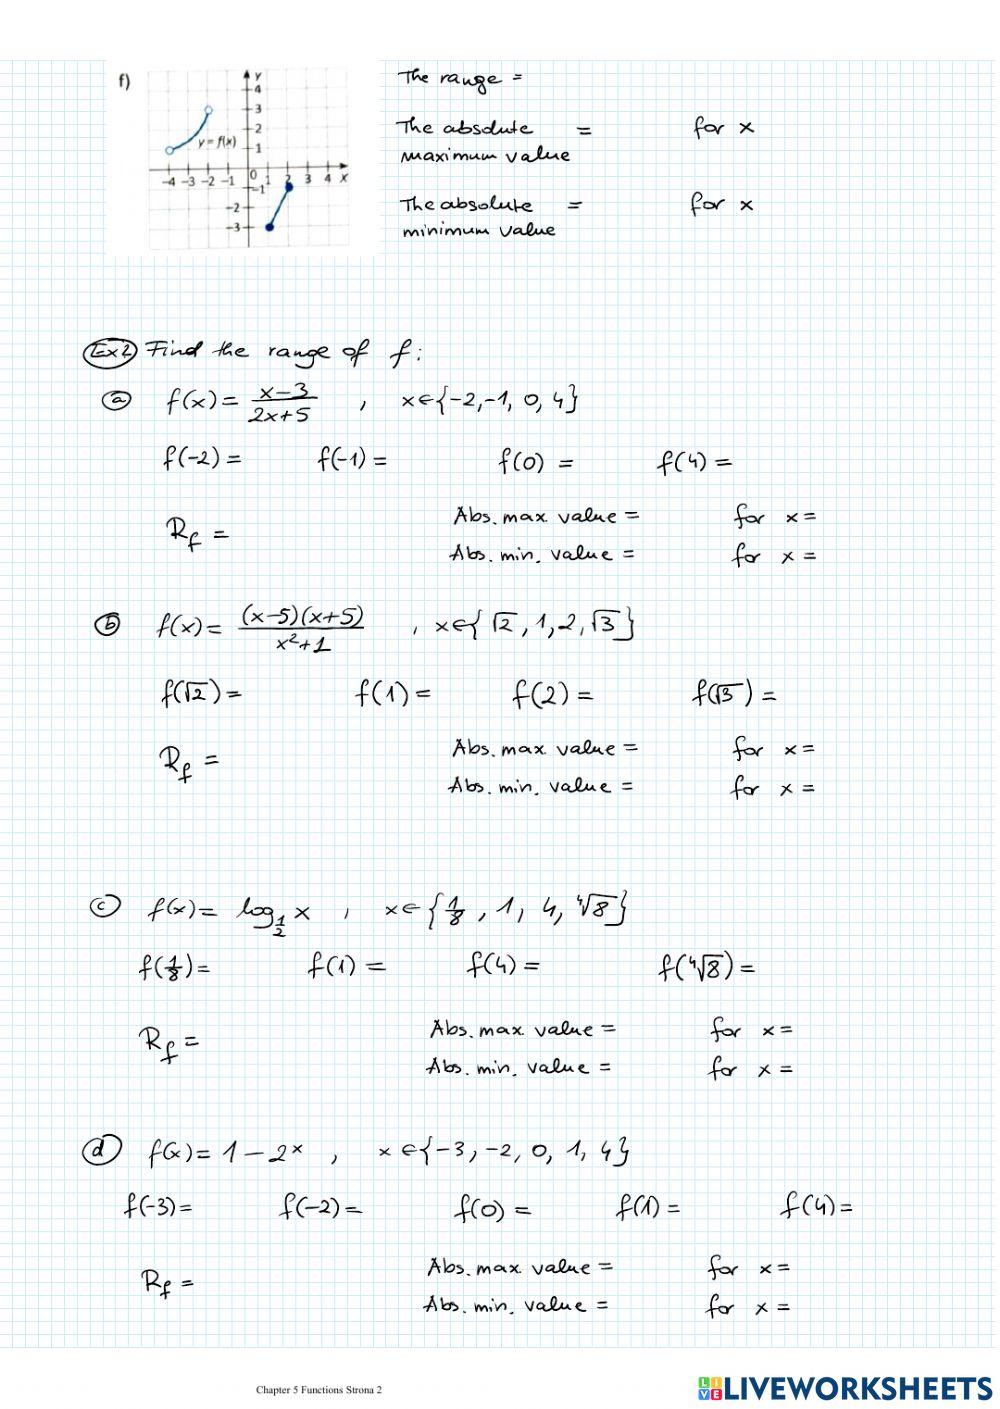 f)
y
4
3
2
1
y = f(x)
-4 -3 -2 -1 0 1 2 3 4 x
-1
-2
-3
The range =
The absolute = for x
maximum value
The absolute = for x
minimum value
Ex2 Find the range of f:
a f(x) = x-3 / 2x+5 , x∈{-2,-1,0,4}
f(-2) = f(-1) = f(0) = f(4) =
Rf = Abs. max value = for x =
Abs. min. value = for x =
b f(x) = (x-5)(x+5) / x²+1 , x∈{√2, 1, 2, √3}
f(√2) = f(1) = f(2) = f(√3) =
Rf = Abs. max value = for x =
Abs. min. value = for x =
c f(x) = log₁/₂ x , x∈{1/8, 1, 4, ⁴√8}
f(1/8) = f(1) = f(4) = f(⁴√8) =
Rf = Abs. max value = for x =
Abs. min. value = for x =
d f(x) = 1 - 2ˣ , x∈{-3, -2, 0, 1, 4}
f(-3) = f(-2) = f(0) = f(1) = f(4) =
Rf = Abs. max value = for x =
Abs. min. value = for x =
Chapter 5 Functions Strona 2
LIVE LIVEWORKSHEETS